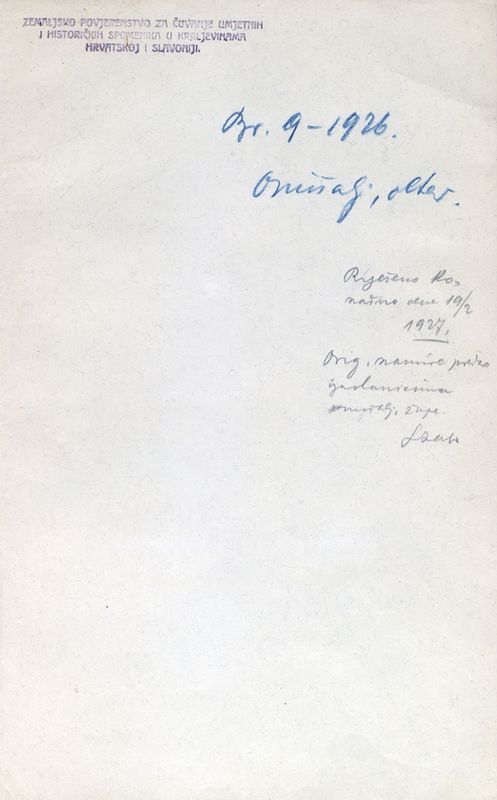 ZEMALJSKO POVJERENSTVO ZA ČUVANJE UMJETNIH
I HISTORIČKIH SPOMENIKA U KRALJEVINAMA
HRVATSKOJ I SLAVONIJI.
Br. 9 – 1926.
Omišalj, oltar.
Riješeno ko-
načno dne 19/2
1927.
Orig. namire predao
izaslanicima
omišalj. župe.
Szabo